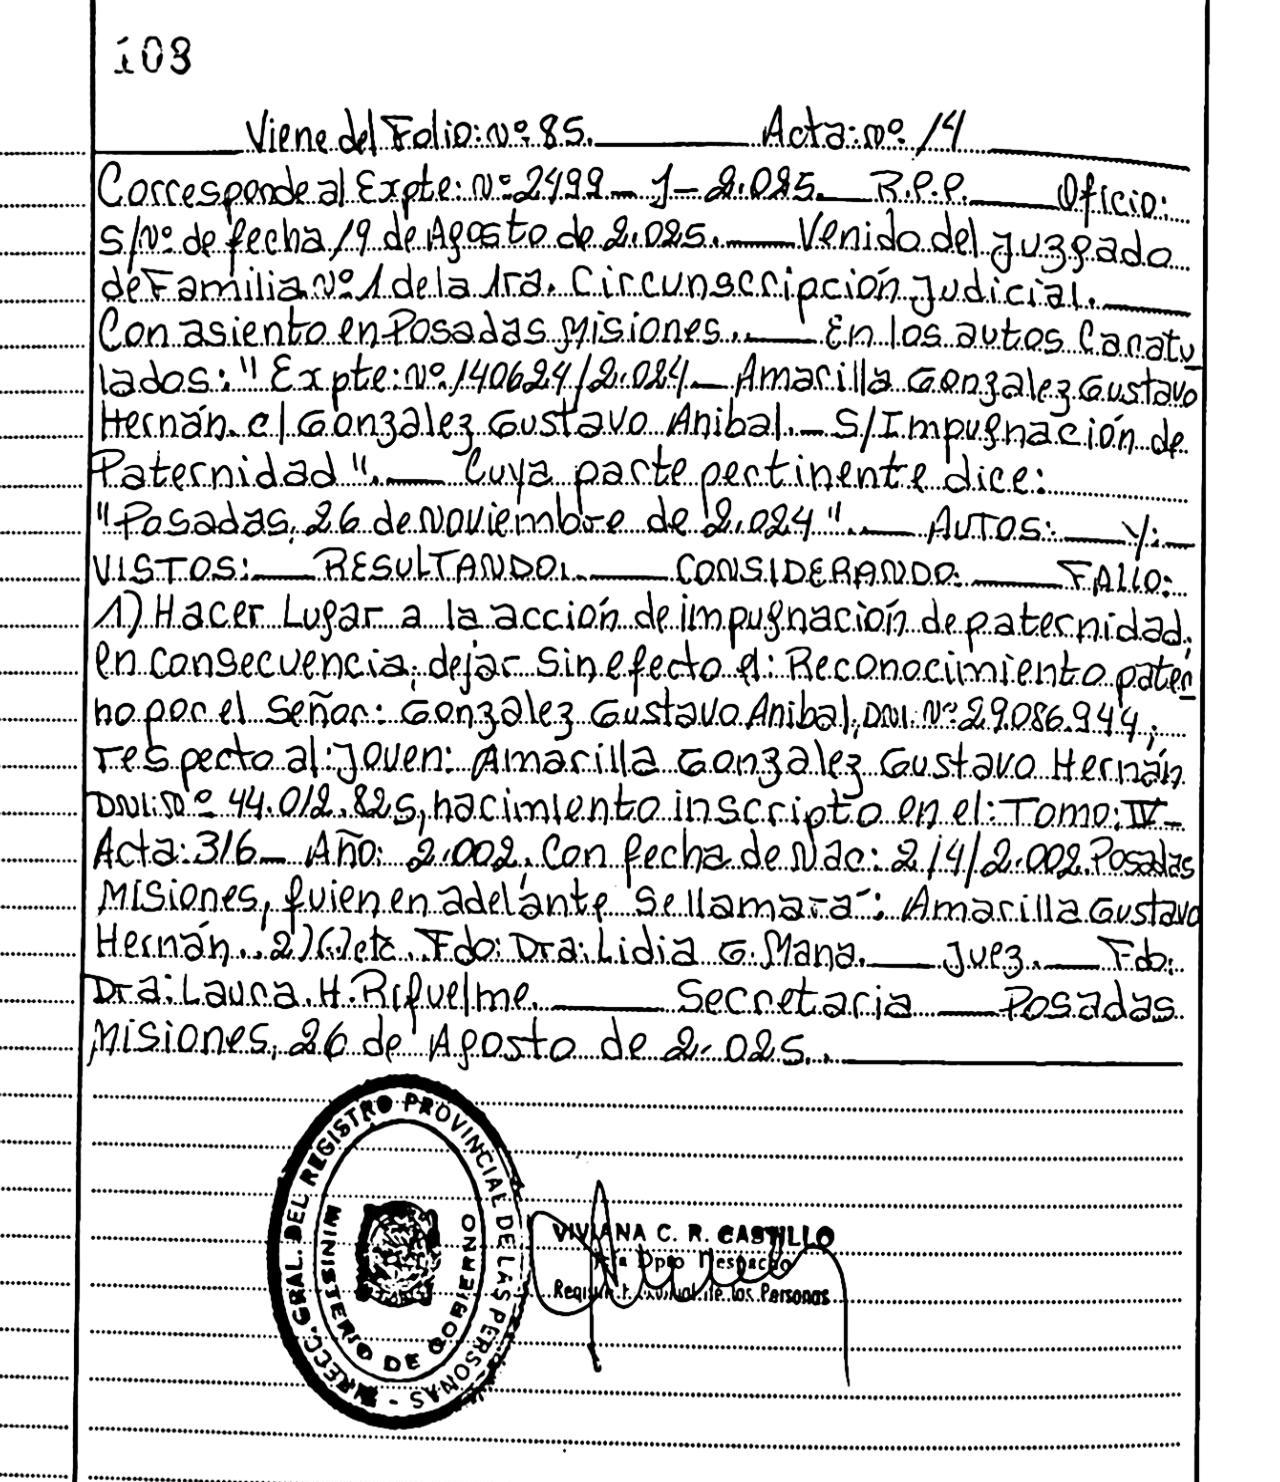 108
Viene del Folio: Nº 85. Acta: nº 14
Corresponde al Expte: Nº 2499 - J - 2.025. R.P.P. Oficio:
S/Nº de fecha 19 de Agosto de 2.025. Venido del Juzgado
de Familia Nº 1 de la 1ra. Circunscripción Judicial.
Con asiento en Posadas Misiones. En los autos Caratu
lados: "Expte: Nº 140624/2.024 - Amarilla Gonzalez Gustavo
Hernán. c/ Gonzalez Gustavo Anibal. - S/Impugnación de
Paternidad". Cuya parte pertinente dice:
"Posadas, 26 de Noviembre de 2.024". AUTOS: Y:
VISTOS: RESULTANDO: CONSIDERANDO: FALLO:
1) Hacer Lugar a la acción de impugnación de paternidad,
en consecuencia, dejar sin efecto el: Reconocimiento pater
no por el Señor: Gonzalez Gustavo Anibal, DNI. Nº 29.086.944,
respecto al: Joven: Amarilla Gonzalez Gustavo Hernán
DNI: Nº 44.012.825, nacimiento inscripto en el: Tomo: IV-
Acta: 316 - Año: 2.002. Con fecha de Nac: 2/4/2.002. Posadas
Misiones, quien en adelante se llamará: Amarilla Gustavo
Hernán. 2) (.) etc. Fdo: Dra: Lidia G. Mana. Juez. Fdo:
Dra: Laura. H. Riquelme. Secretaria Posadas
Misiones, 26 de Agosto de 2.025.
DIRECC. GRAL. DEL REGISTRO PROVINCIAL DE LAS PERSONAS -
MINISTERIO DE GOBIERNO
VIVIANA C. R. CASTILLO
Dpto Despacho
de las Personas